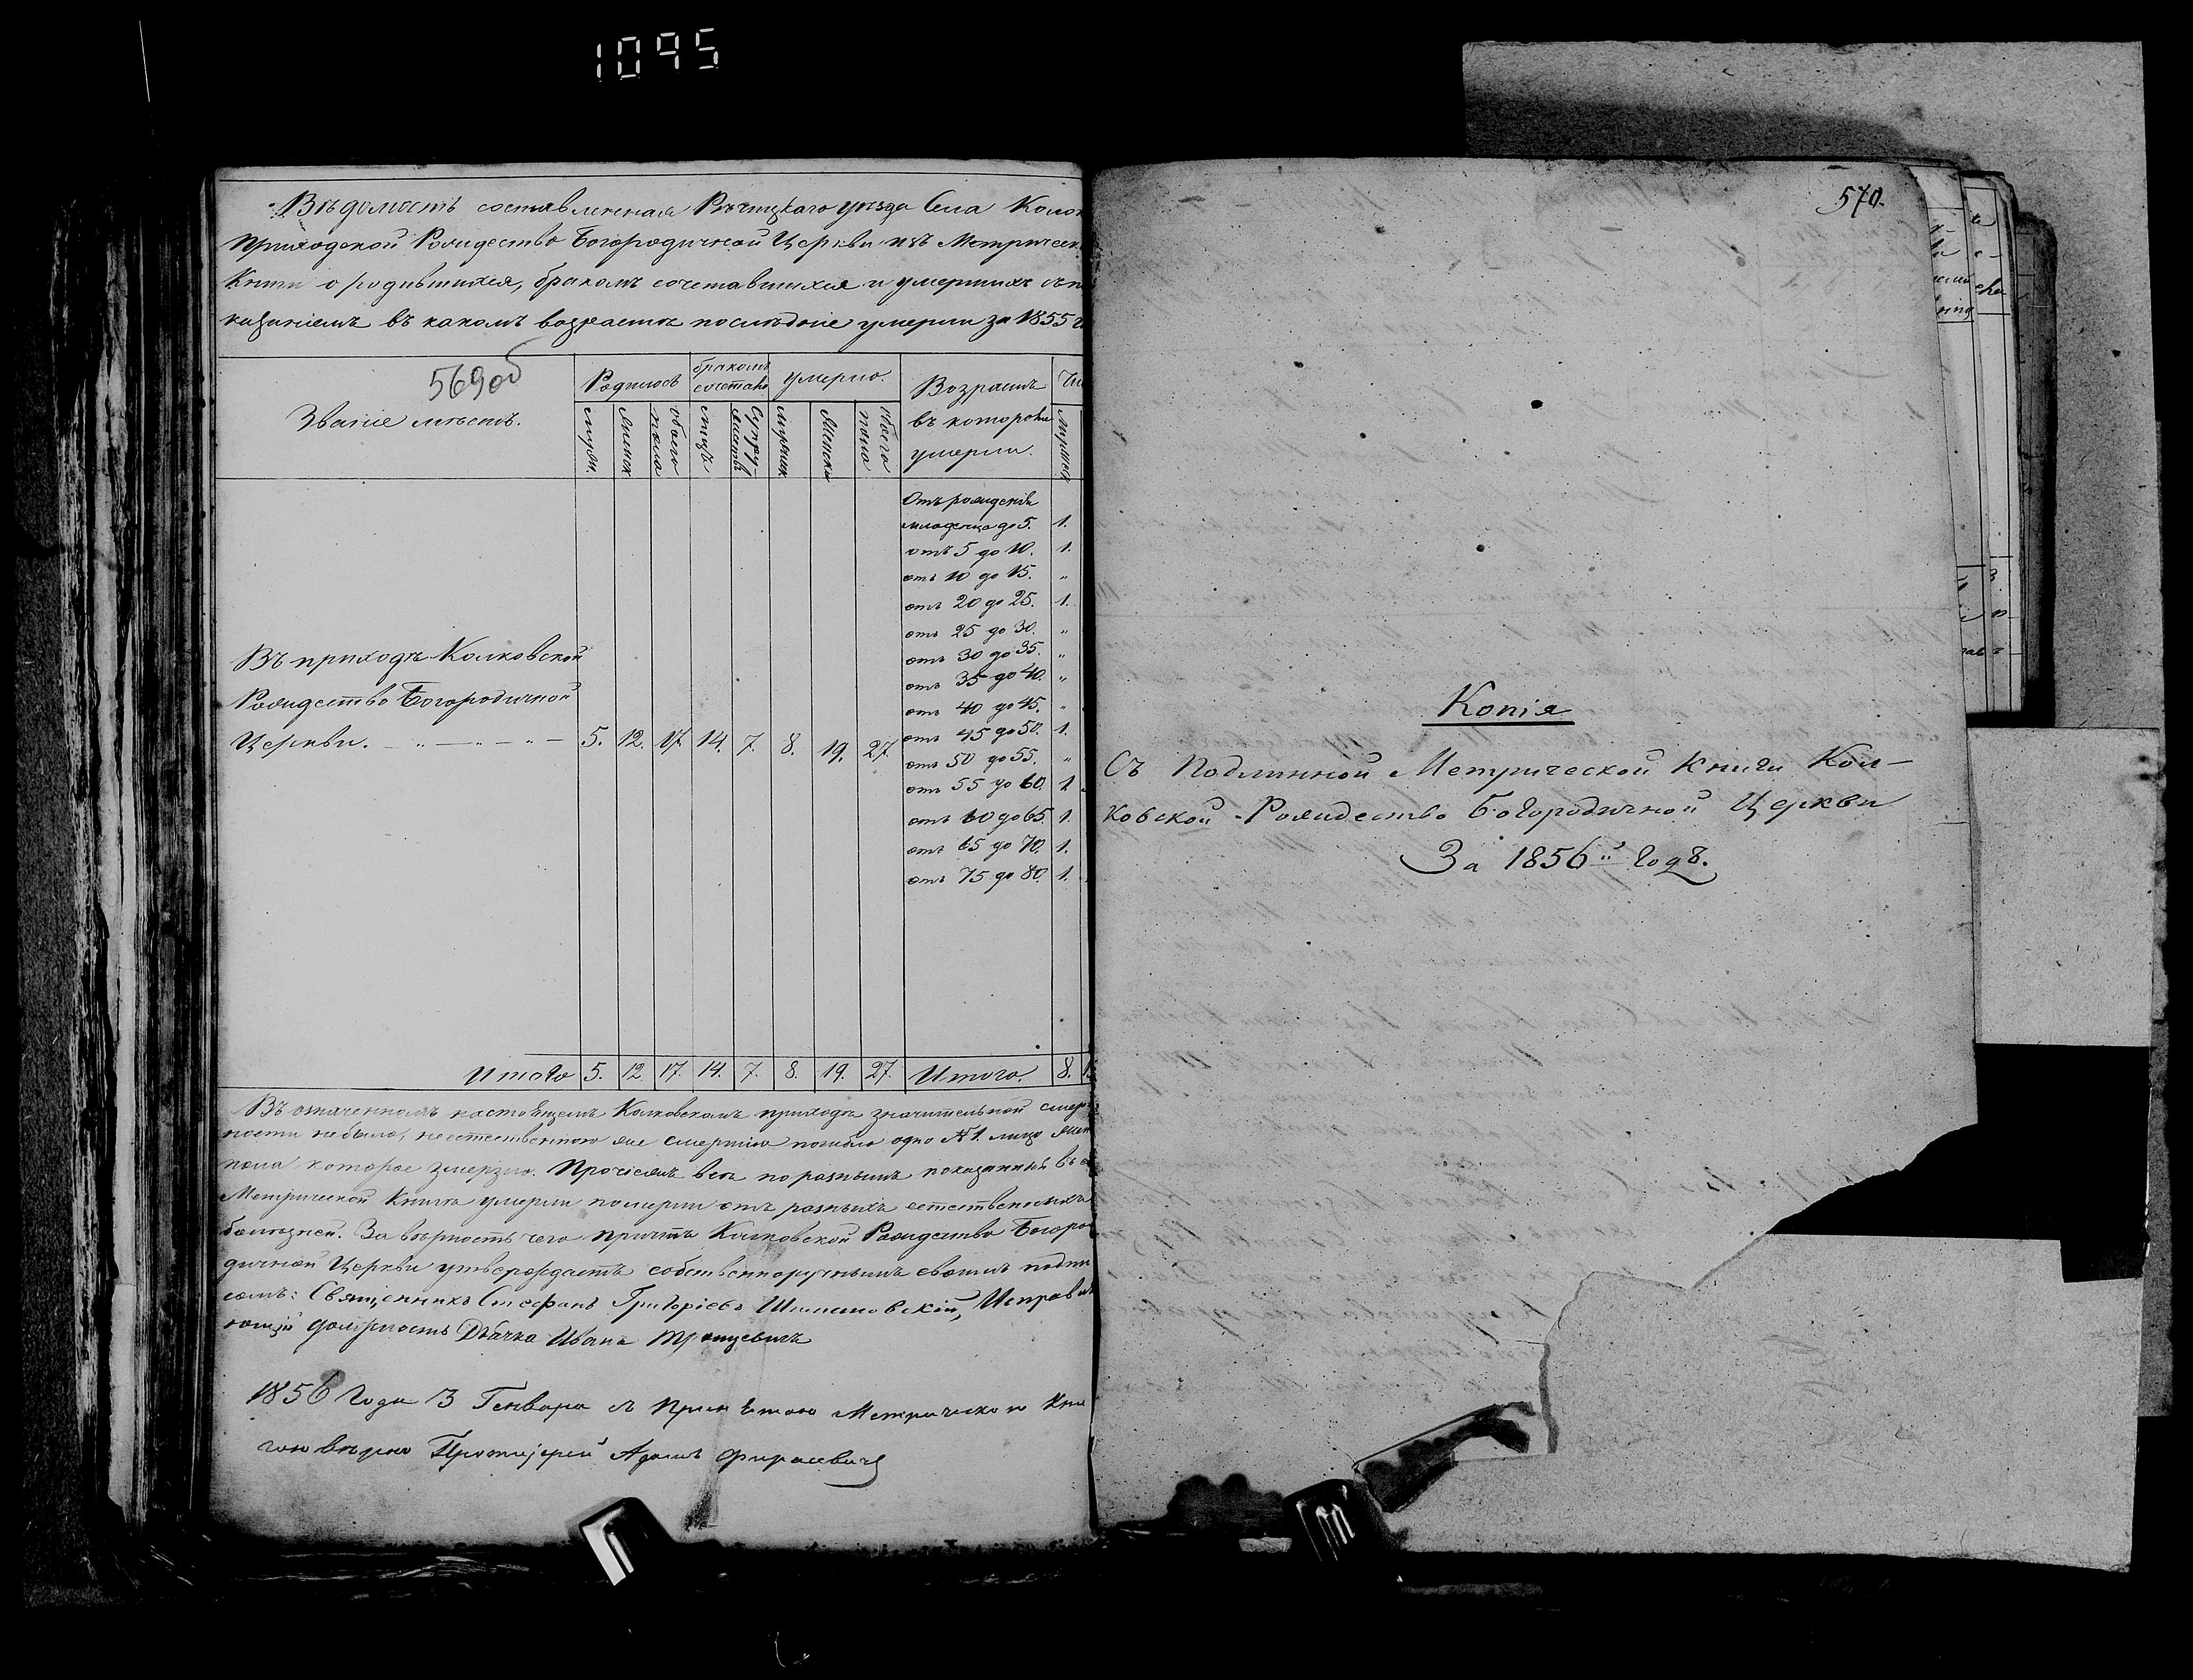 1095
Вѣдомость составленная Рѣчицкаго уѣзда Села
Приходской Рождество Богородичной Церкви изъ Метрическ
Книги о родившихся, бракомъ сочетавшихся и умершихъ съ
казаніемъ въ какомъ возрастѣ послѣдніе умерли за 1855
569об
Званіе мѣстъ.
Родилось
бракомъ
сочетано
умерло.
Возрастъ
въ которомъ
умерли.
мужск.
женск
обоего
пола
лицъ
Супру
жествъ
Мужеск
Женска
обоего
пола
мужеск
Отъ рожденія
младенца до 5. 1.
отъ 5 до 10. 1.
отъ 10 до 15. „
отъ 20 до 25. 1.
отъ 25 до 30. „
отъ 30 до 35. „
отъ 35 до 40. „
отъ 40 до 45. „
отъ 45 до 50. 1.
отъ 50 до 55. „
отъ 55 до 60. 1
отъ 60 до 65. 1.
отъ 65 до 70. 1.
отъ 75 до 80. 1.
Въ приходѣ Колковской
Рождество Богородичной
Церкви. 5. 12. 17. 14. 7. 8. 19. 27.
Итого 5. 12. 17. 14. 7. 8. 19. 27. Итого. 8.
Въ означенномъ настоящемъ Колковскомъ приходѣ значительной смер
ности небыло, неестественною же смертію погибло одно №1. лицо жен
пола которое змерзло. Прочіежъ всѣ по разнымъ показаннымъ въ
Метрической Книгѣ умерли померли отъ разныхъ естественныхъ
болѣзней. За вѣрность чего причтъ Колковской Рождество Богоро
дичной Церкви утверждаетъ собственноручнымъ своимъ подпи
сомъ: Священникъ Стефанъ Григоріевъ Шимановскій, Исправля
ющій должность Дьячка Иванъ
1856 Года 13 Генваря с Метрическою Кни
гою вѣрно Протоіерей Адамъ
570.
Копія
Съ Подлинной Метрической Книги Кол-
ковской Рождество Богородичной Церкви
За 1856й Годъ.